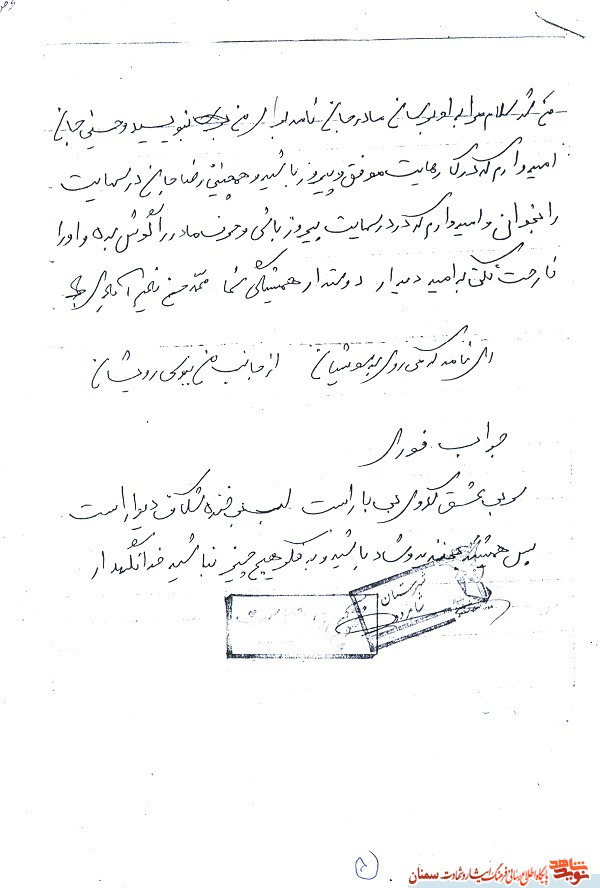 سلام مرا به او برسان مادر جان نامه برای من بنویسید و حسینی جان
امیدوارم که در کارهایت موفق و پیروز باشید و همچنین رضا جان درسهایت
را بخوانی و امیدوارم که در درسهایت پیروز باشی و حرف مادر را گوش بده و او را
ناراحت نکنی به امید دیدار دوستدار همیشگی شما محمد حسن
ای نامه که می روی به سویشان از جانب من ببوس رویشان
جواب فوری
سر بی عشق کدوی بی بار است لب بی خنده شکاف دیوار است
پس همیشه بخندید و شاد باشید و به فکر هیچ چیز نباشید خدانگهدار
شهرستان
شاهرود
نوید شاهد
پایگاه اطلاع رسانی فرهنگ ایثار و شهادت سمنان